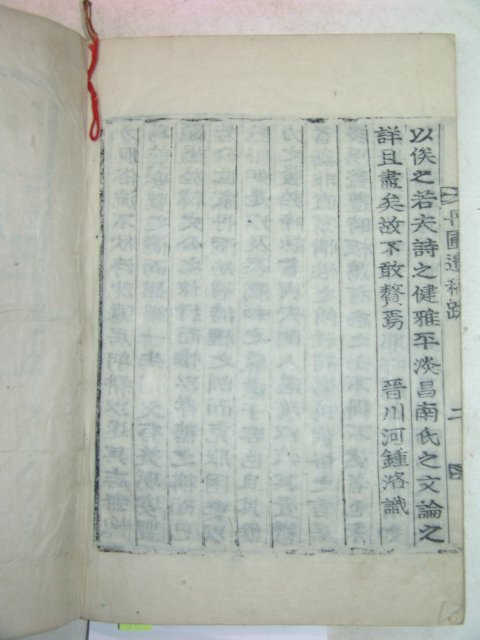 以俟之若夫詩之健雅平淡昌南氏之文論之
詳且盡矣故不敢贅焉 晉川河鍾洛識
圃遺稿跋 二